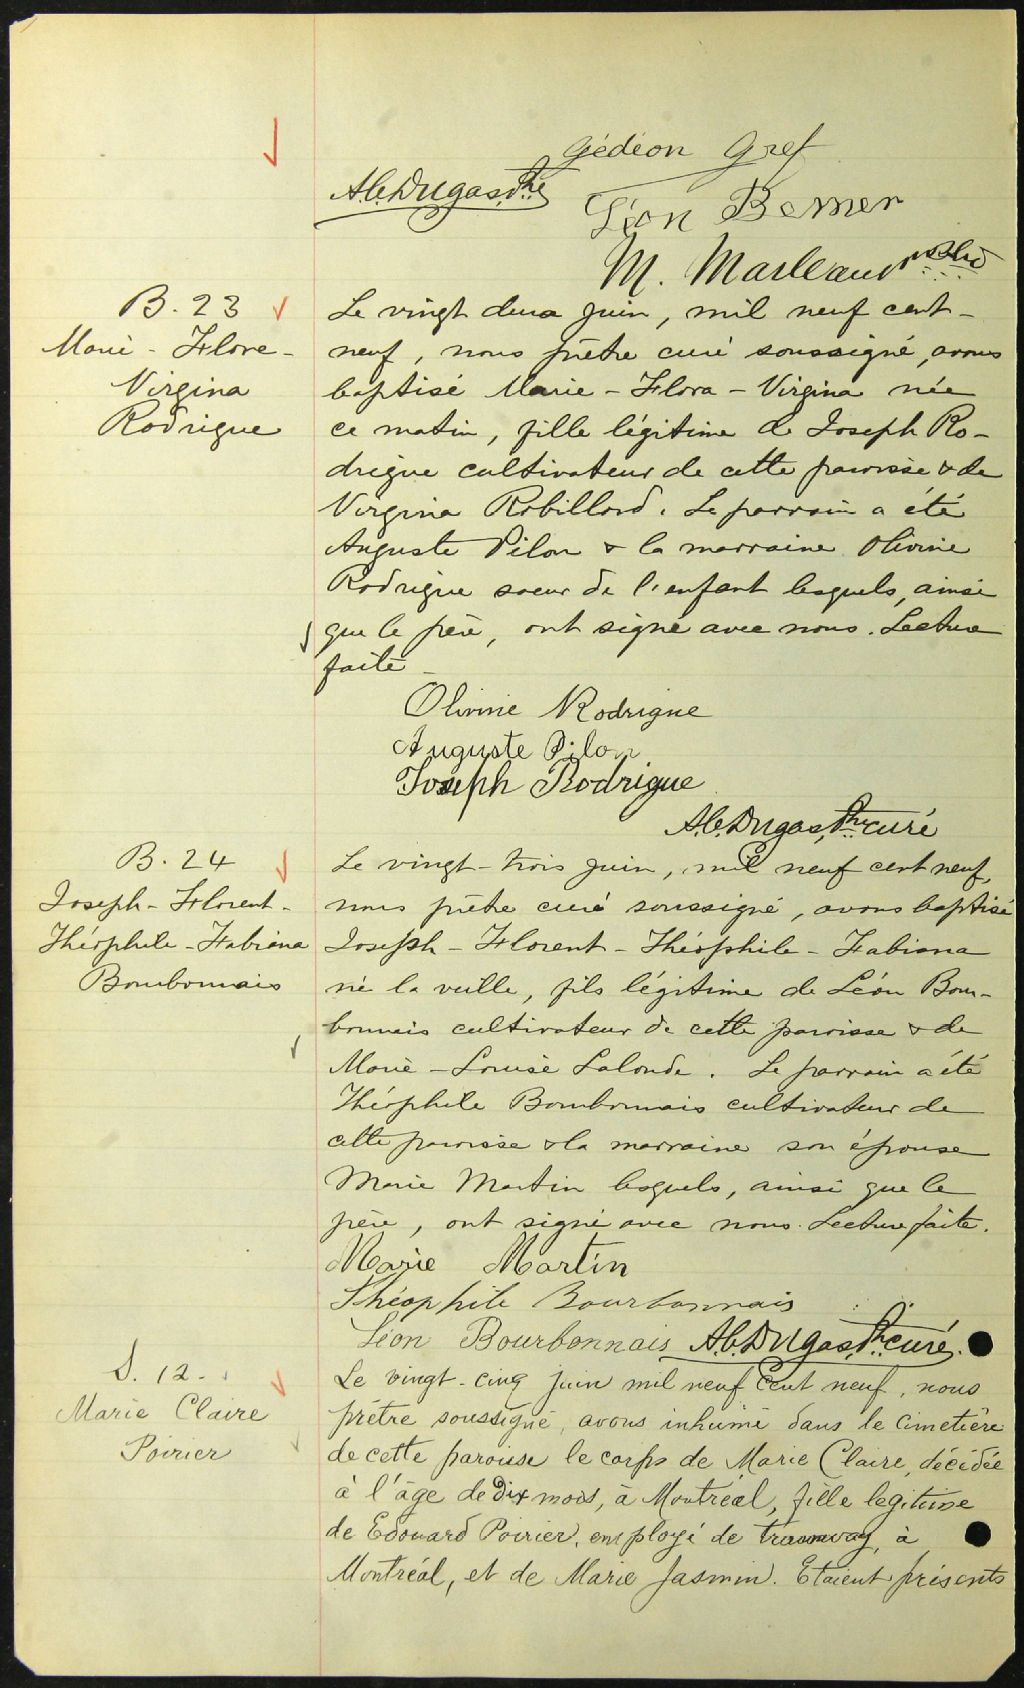 Gédéon Gref
A.C. Dugas, Ptre
Léon Bernier
M. Marleau
B. 23
Marie - Flore -
Virgina
Rodrigue
Le vingt deux juin, mil neuf cent -
neuf, nous prêtre curé soussigné, avons
baptisé Marie - Flora - Virgina née
ce matin, fille légitime de Joseph Ro-
drigue cultivateur de cette paroisse & de
Virgina Robillard. Le parrain a été
Auguste Pilon & la marraine Olivine
Rodrigue soeur de l'enfant lesquels, ainsi
que le père, ont signé avec nous. Lecture
faite -
Olivine Rodrigue
Auguste Pilon
Joseph Rodrigue
A.C. Dugas, Ptre curé
B. 24
Joseph - Florent -
Théophile - Fabiana
Bourbonnais
Le vingt-trois juin, mil neuf cent neuf,
nous prêtre curé soussigné, avons baptisé
Joseph - Florent - Théophile - Fabiana
né la veille, fils légitime de Léon Bour-
bonnais cultivateur de cette paroisse & de
Marie - Louise Lalonde. Le parrain a été
Théophile Bourbonnais cultivateur de
cette paroisse & la marraine son épouse
Marie Martin lesquels, ainsi que le
père, ont signé avec nous. Lecture faite.
Marie Martin
Théophile Bourbonnais
Léon Bourbonnais A.C. Dugas, Ptre curé.
S. 12.
Marie Claire
Poirier
Le vingt-cinq juin mil neuf cent neuf, nous
prêtre soussigné, avons inhumé dans le cimetière
de cette paroisse le corps de Marie Claire, décédée
à l'âge de dix mois, à Montréal, fille legitime
de Edouard Poirier, employé de tramway, à
Montréal, et de Marie Jasmin. Etaient présents